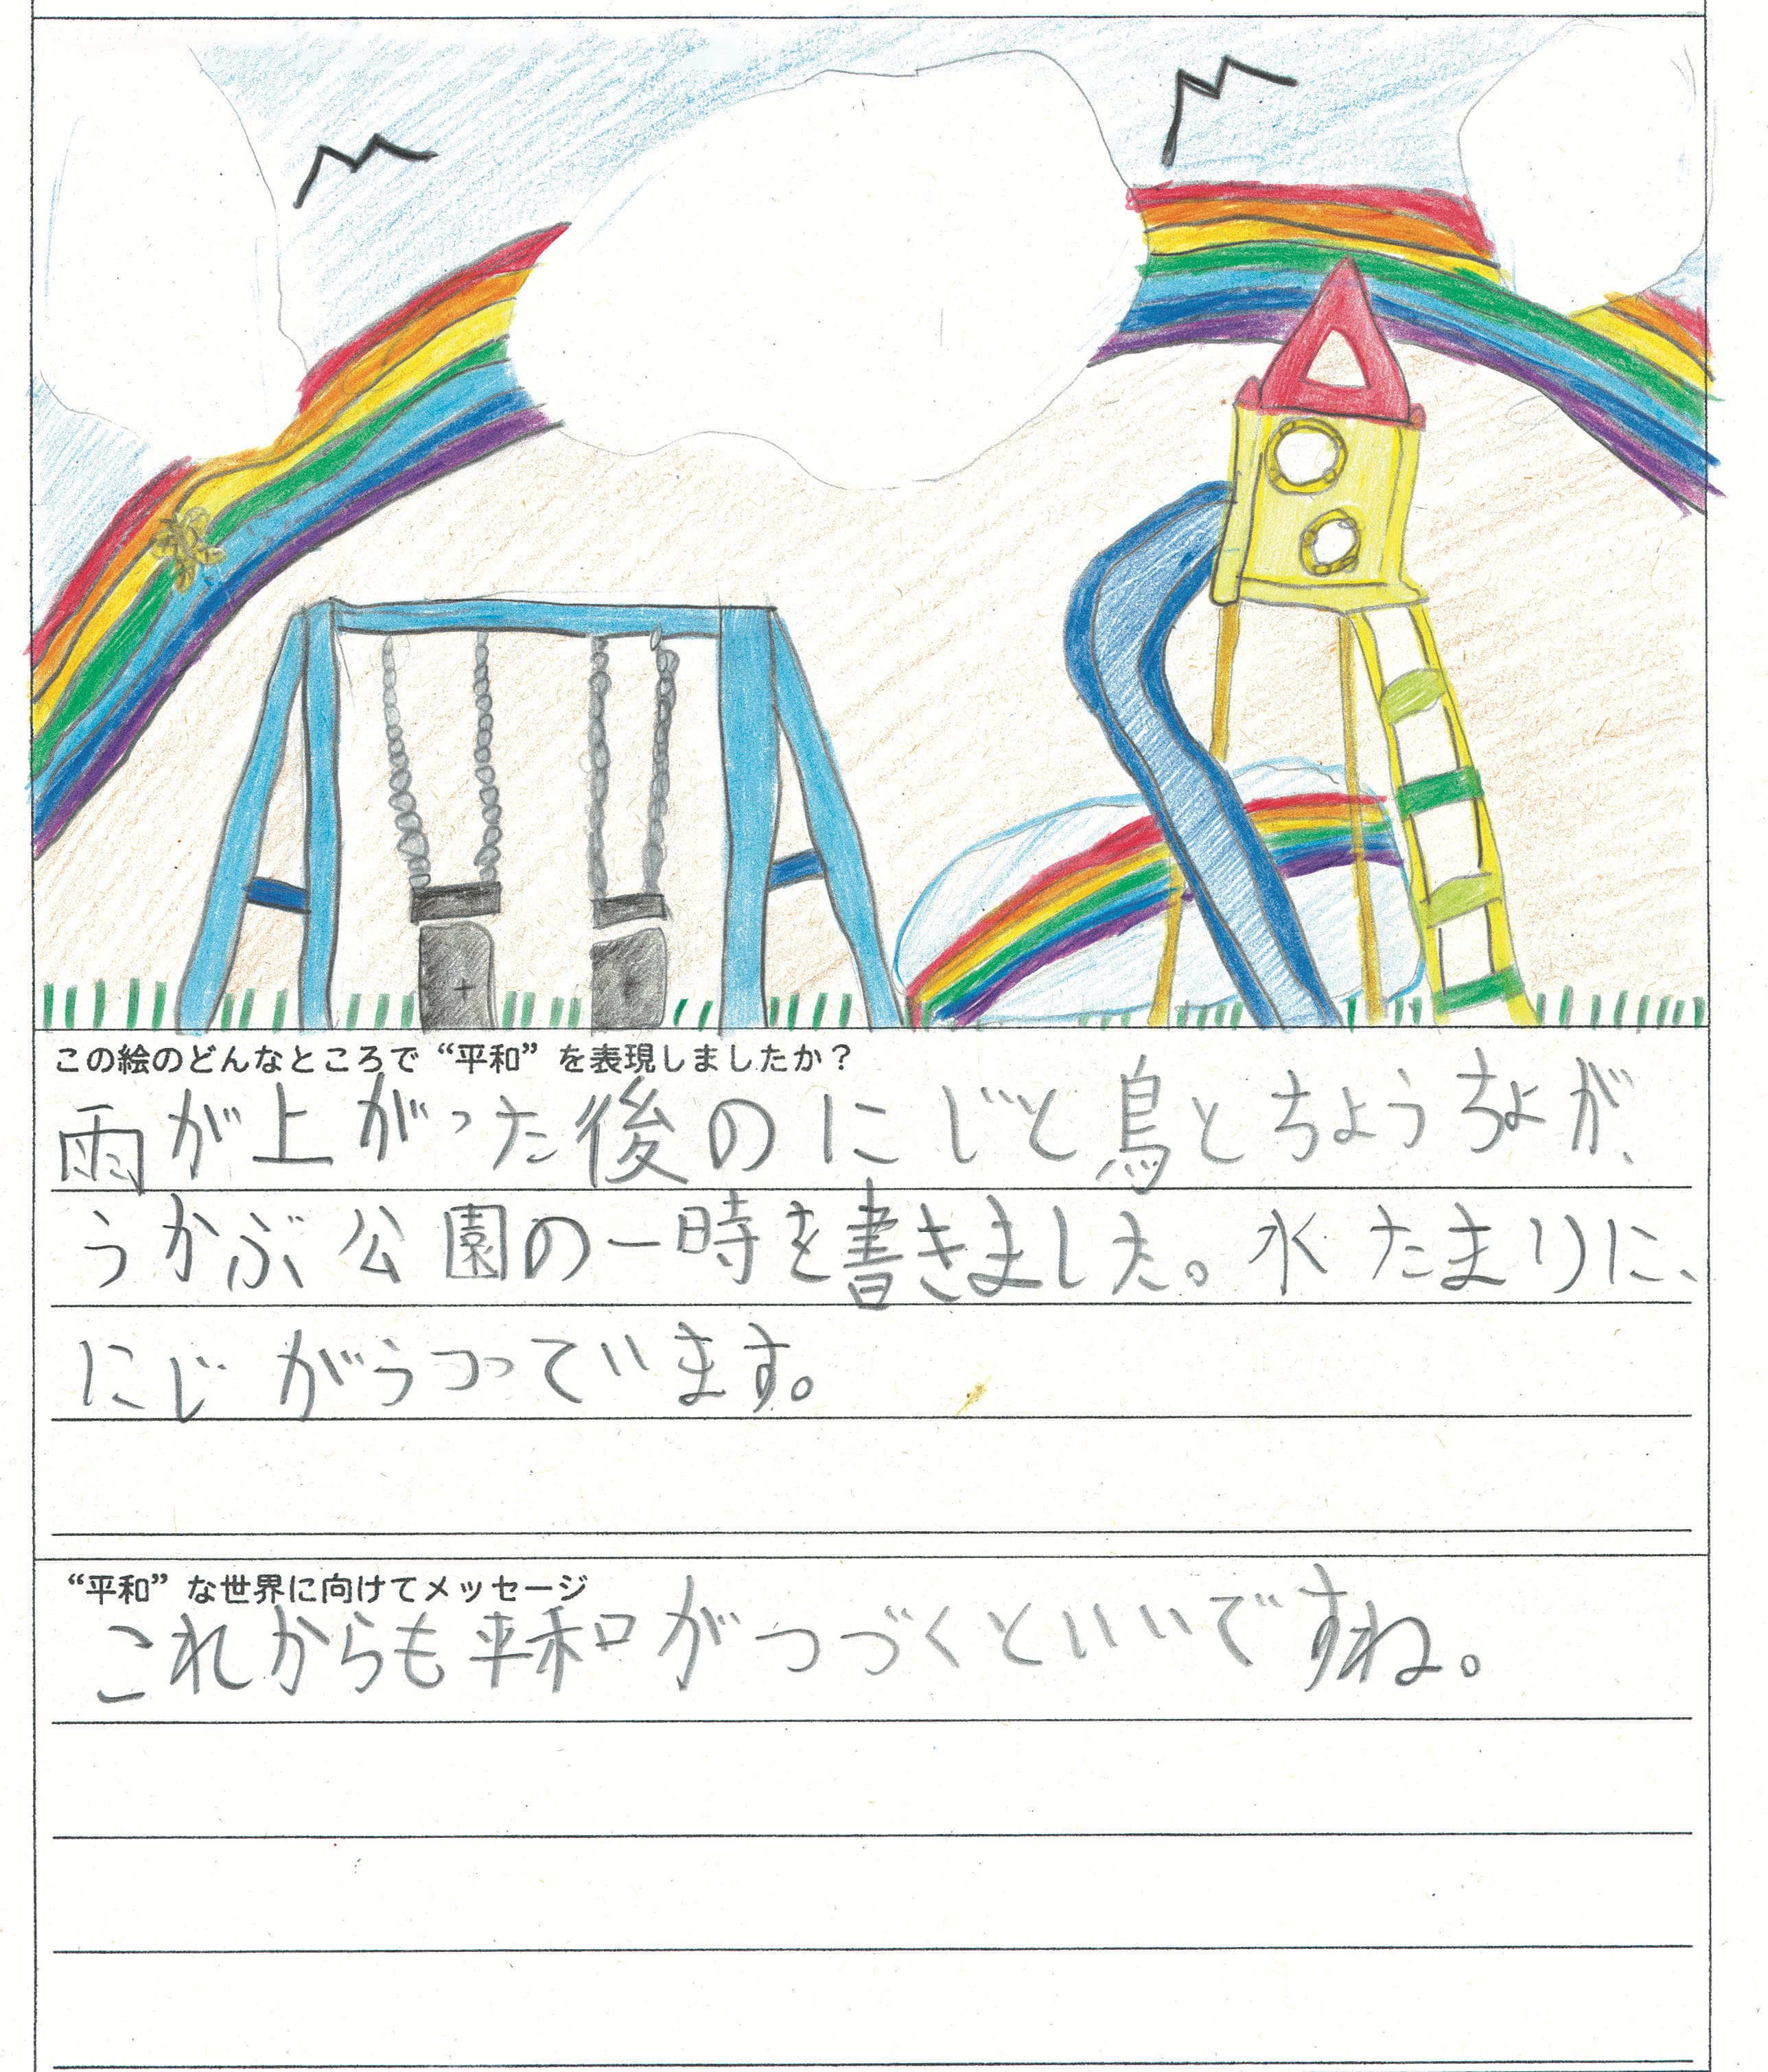 この絵のどんなところで“平和”を表現しましたか？
雨が上がった後のにじと鳥とちょうちょが、
うかぶ公園の一時を書きました。水たまりに、
にじがうつっています。
“平和”な世界に向けてメッセージ
これからも平和がつづくといいですね。